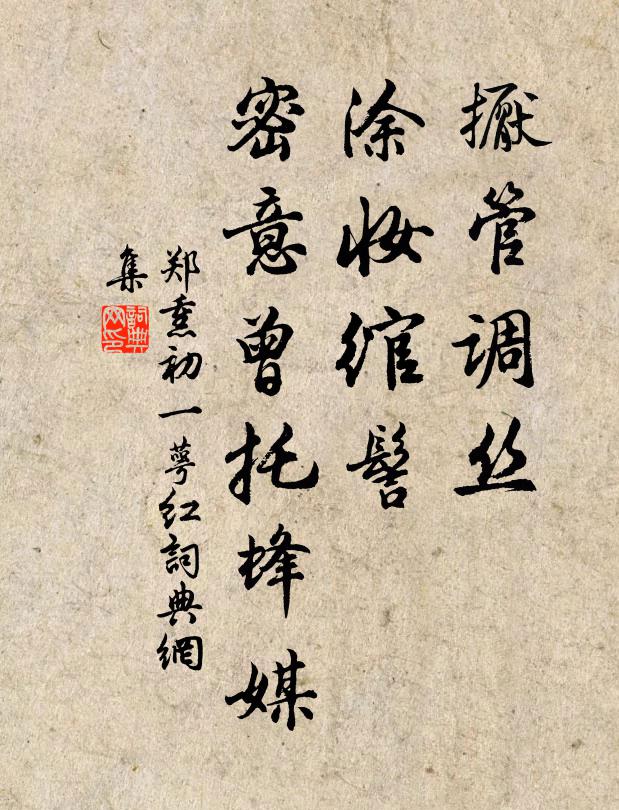 擫管调丝
涂妆绾髻
密意曾托蜂媒
郑熏初一萼红詞典網
集
詞典
网印